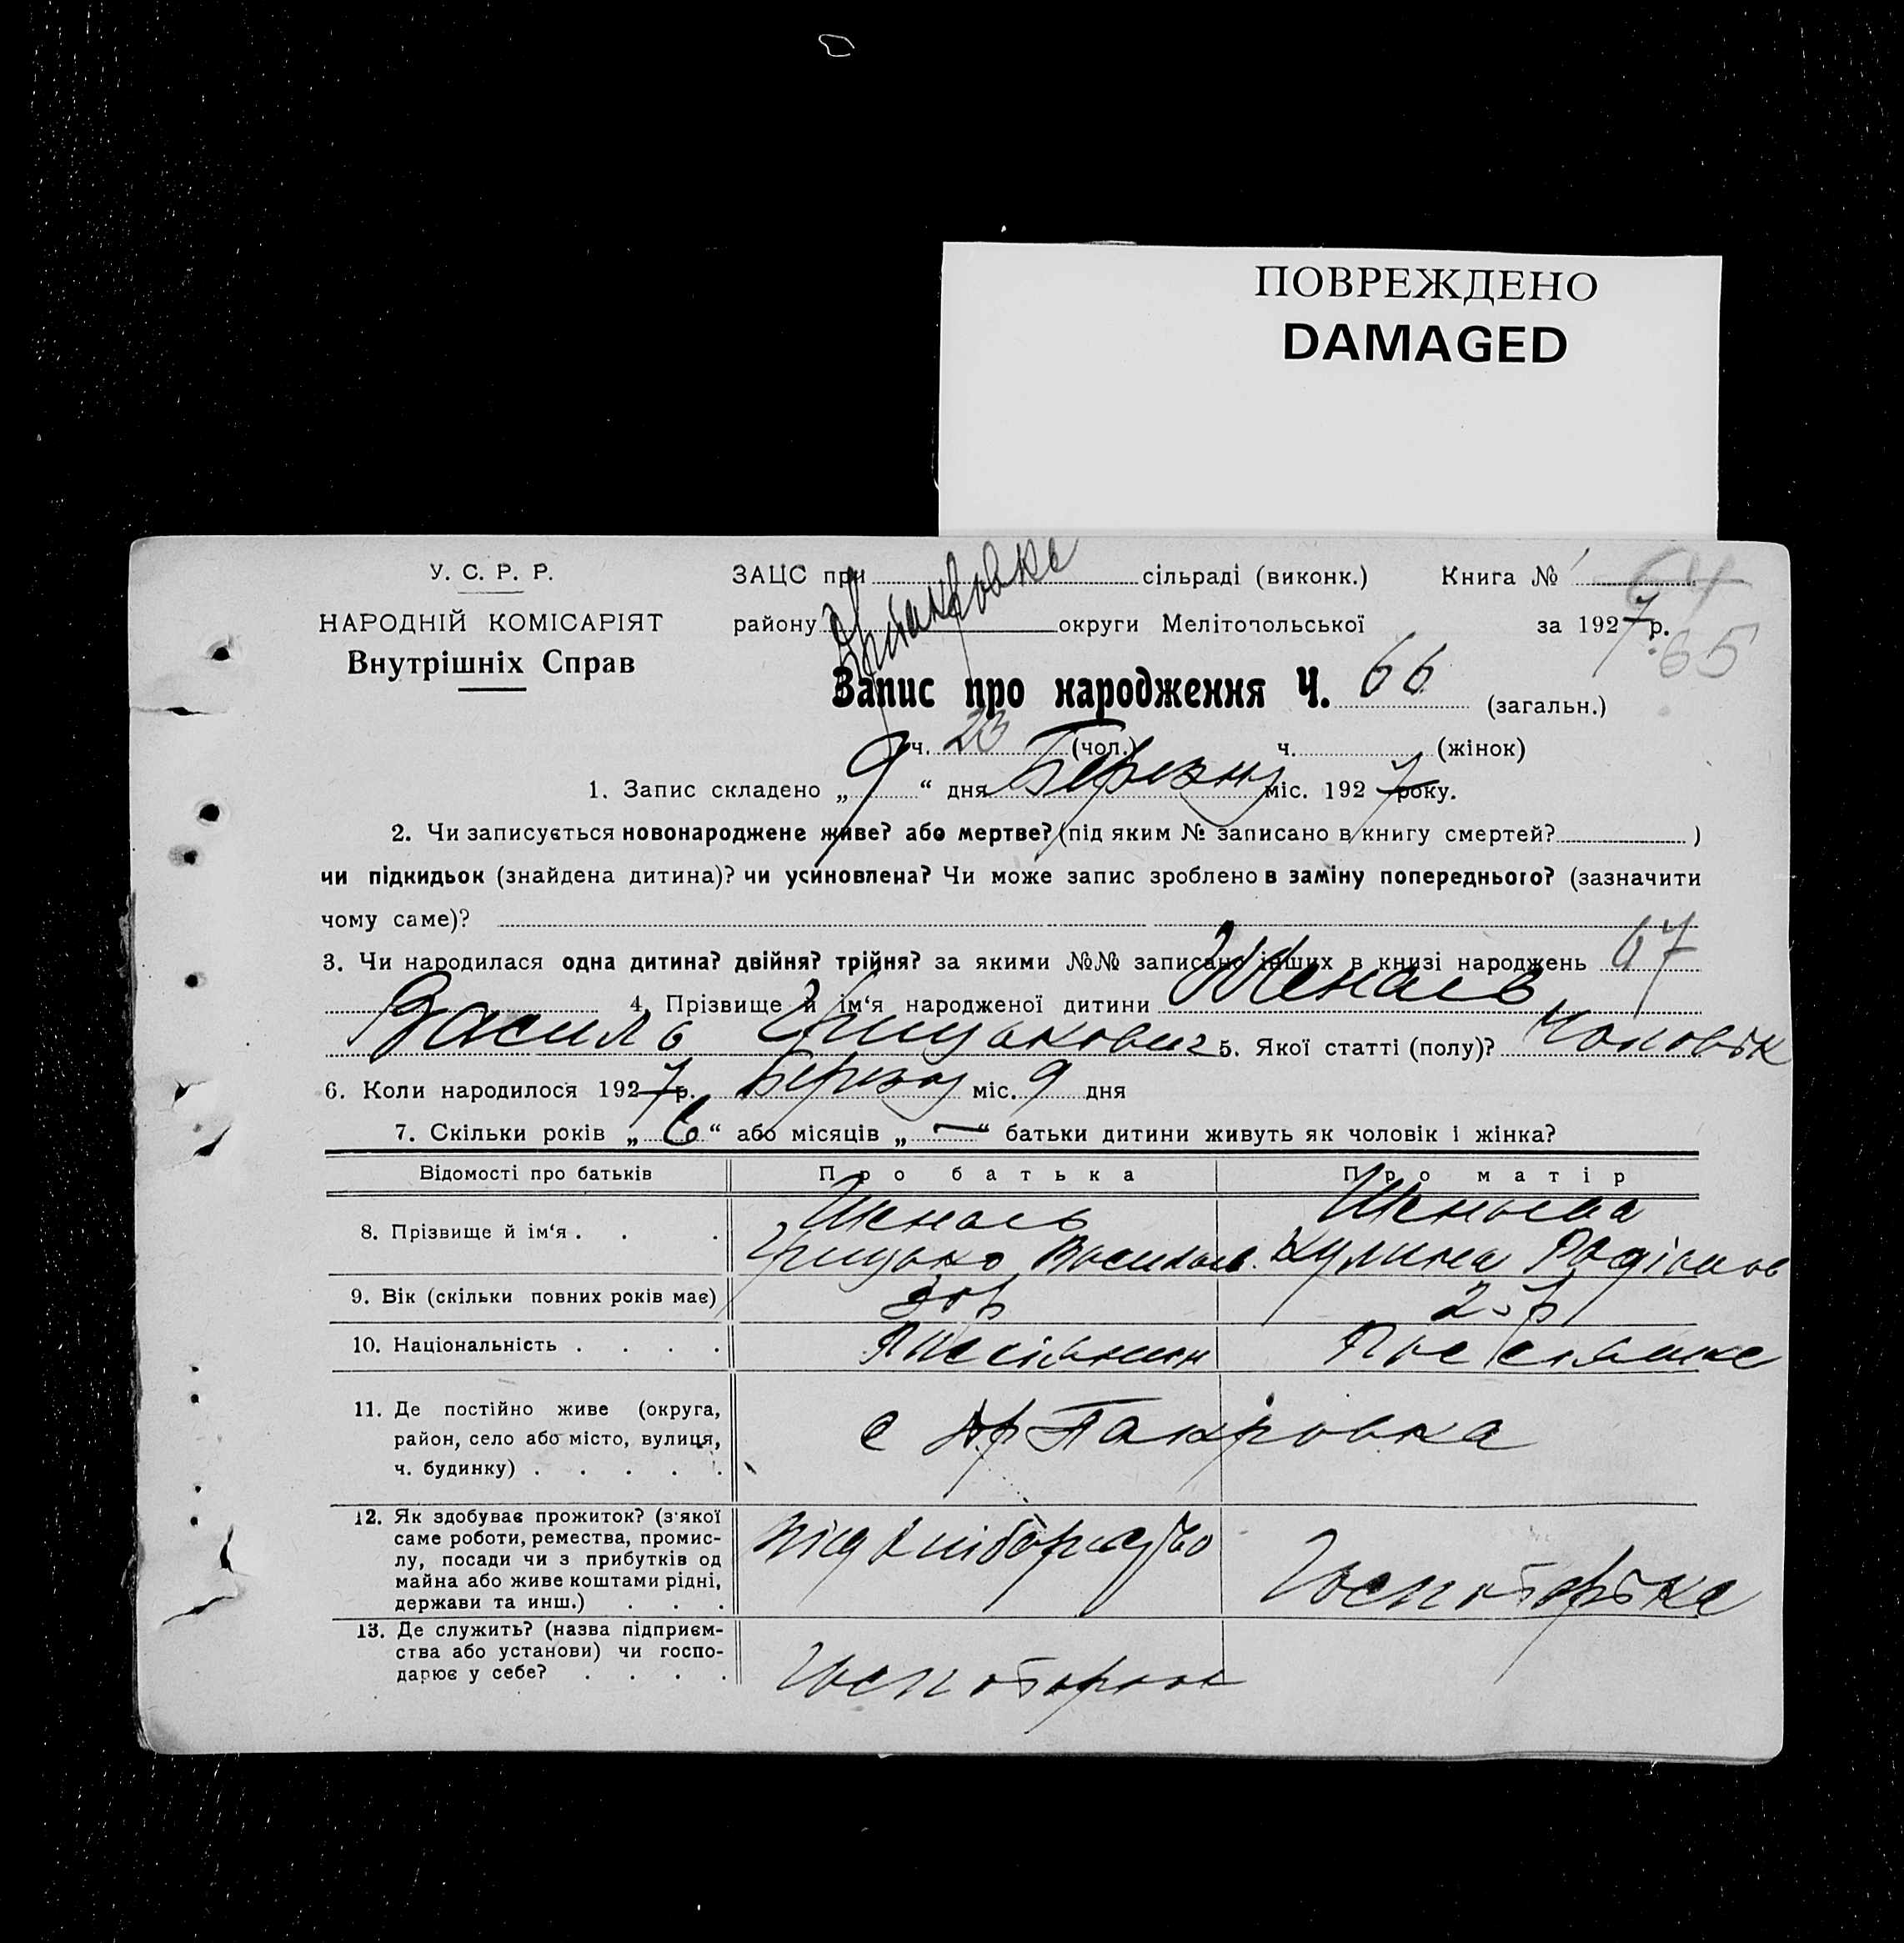 ПОВРЕЖДЕНО
DAMAGED
У. С. Р. Р.
НАРОДНІЙ КОМІСАРІЯТ
Внутрішніх Справ
ЗАЦС при сільраді (виконк.) Книга №
району округи Мелітопольської за 1927 р.
65
Запис про народження Ч. 66 (загальн.)
ч. 23 (чол.) ч. (жінок)
1. Запис складено „ 9 “ дня Березня міс. 1927 року.
2. Чи записується новонароджене живе? або мертве? (під яким № записано в книгу смертей? )
чи підкидьок (знайдена дитина)? чи усиновлена? Чи може запис зроблено в заміну попереднього? (зазначити
чому саме)?
3. Чи народилася одна дитина? двійня? трійня? за якими №№ записано інших в книзі народжень 67
4. Прізвище й ім‘я народженої дитини
Василь Грицькович 5. Якої статті (полу)? Чоловік
6. Коли народилося 1927 р. Березня міс. 9 дня
7. Скільки років „ 6 “ або місяців „ — “ батьки дитини живуть як чоловік і жінка?
Відомості про батьків Про батька Про матір
8. Прізвище й ім‘я . . .
Грицько Васильов. Кулина Родіонов
9. Вік (скільки повних років має)
10. Національність . . . .
11. Де постійно живе (округа,
район, село або місто, вулиця,
ч. будинку) . . . . .
с Покровка
12. Як здобуває прожиток? (з‘якої
саме роботи, ремества, промис-
лу, посади чи з прибутків од
майна або живе коштами рідні,
держави та инш.) . . .
13. Де служить? (назва підприєм-
ства або установи) чи госпо-
дарює у себе? . . . .